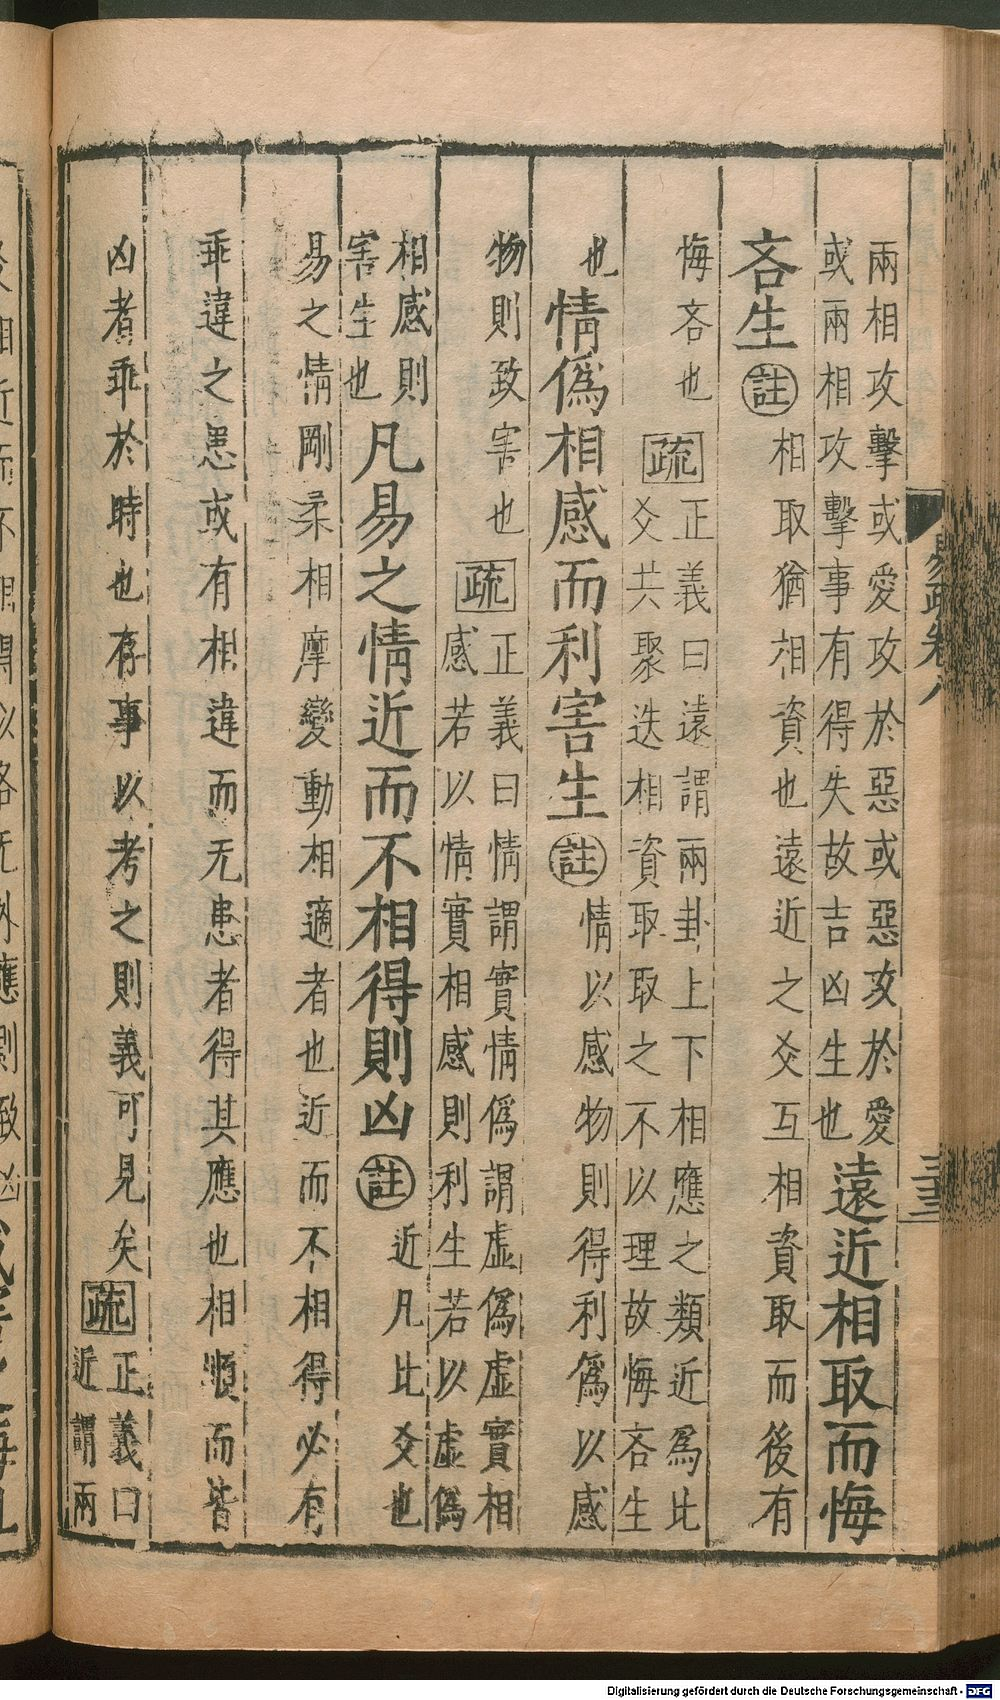 兩相攻擊或愛攻於惡或惡攻於愛
或兩相攻擊事有得失故吉凶生也
遠近相取而悔
吝生
註
相取猶相資也遠近之爻互相資取而後有
悔吝也
疏
正義曰遠謂兩卦上下相應之類近為比
爻共聚迭相資取取之不以理故悔吝生
也
情偽相感而利害生
註
情以感物則得利偽以感
物則致害也
疏
正義曰情謂實情偽謂虛偽虛實相
感若以情實相感則利生若以虛偽
相感則
害生也
凡易之情近而不相得則凶
註
近凡比爻也
易之情剛柔相摩變動相適者也近而不相得必有
乖違之患或有相違而无患者得其應也相順而皆
凶者乖於時也存事以考之則義可見矣
疏
正義曰
近謂兩
易疏卷八
三十三
Digitalisierung gefördert durch die Deutsche Forschungsgemeinschaft - DFG